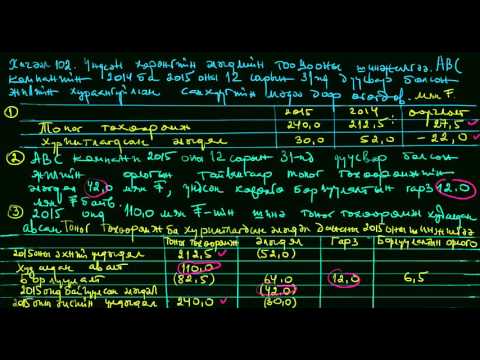 Хичээл 102. Үндсэн хөрөнгийн элэгдлийн тооцооны шинжилгээ. ABC
компанийн 2014 ба 2015 оны 12 сарын 31-нд дуусвар болсон
жилийн хураангуйлсан санхүүгийн мэдээ доор өгөгдөв. млн ₮.
① 2015 2014 өөрчлөлт
Тоног төхөөрөмж 240,0 212,5 27,5
Хуримтлагдсан элэгдэл 30,0 52,0 -22,0
② ABC компани 2015 оны 12 сарын 31-нд дуусвар болсон
жилийн орлогын тайлангаар тоног төхөөрөмжийн
элэгдэл 42,0 млн ₮, үндсэн хөрөнгө борлуулалтын гарз 12.0
млн ₮ байв.
③ 2015 онд 110,0 млн ₮-ийн шинэ тоног төхөөрөмж худалдан
авсан. Тоног төхөөрөмж ба хуримтлагдсан элэгдэл дансны 2015 оны шинжилгээ
Тоног төхөөрөмж Элэгдэл Гарз Борлуулалтын орлого
2015 оны эхний үлдэгдэл 212,5 (52,0)
Худалдан авалт 110,0
Борлуулалт (82,5) 64,0 12,0 6,5
2015 онд байгуулсан элэгдэл (42.0)
2015 оны эцсийн үлдэгдэл 240,0 (30,0)